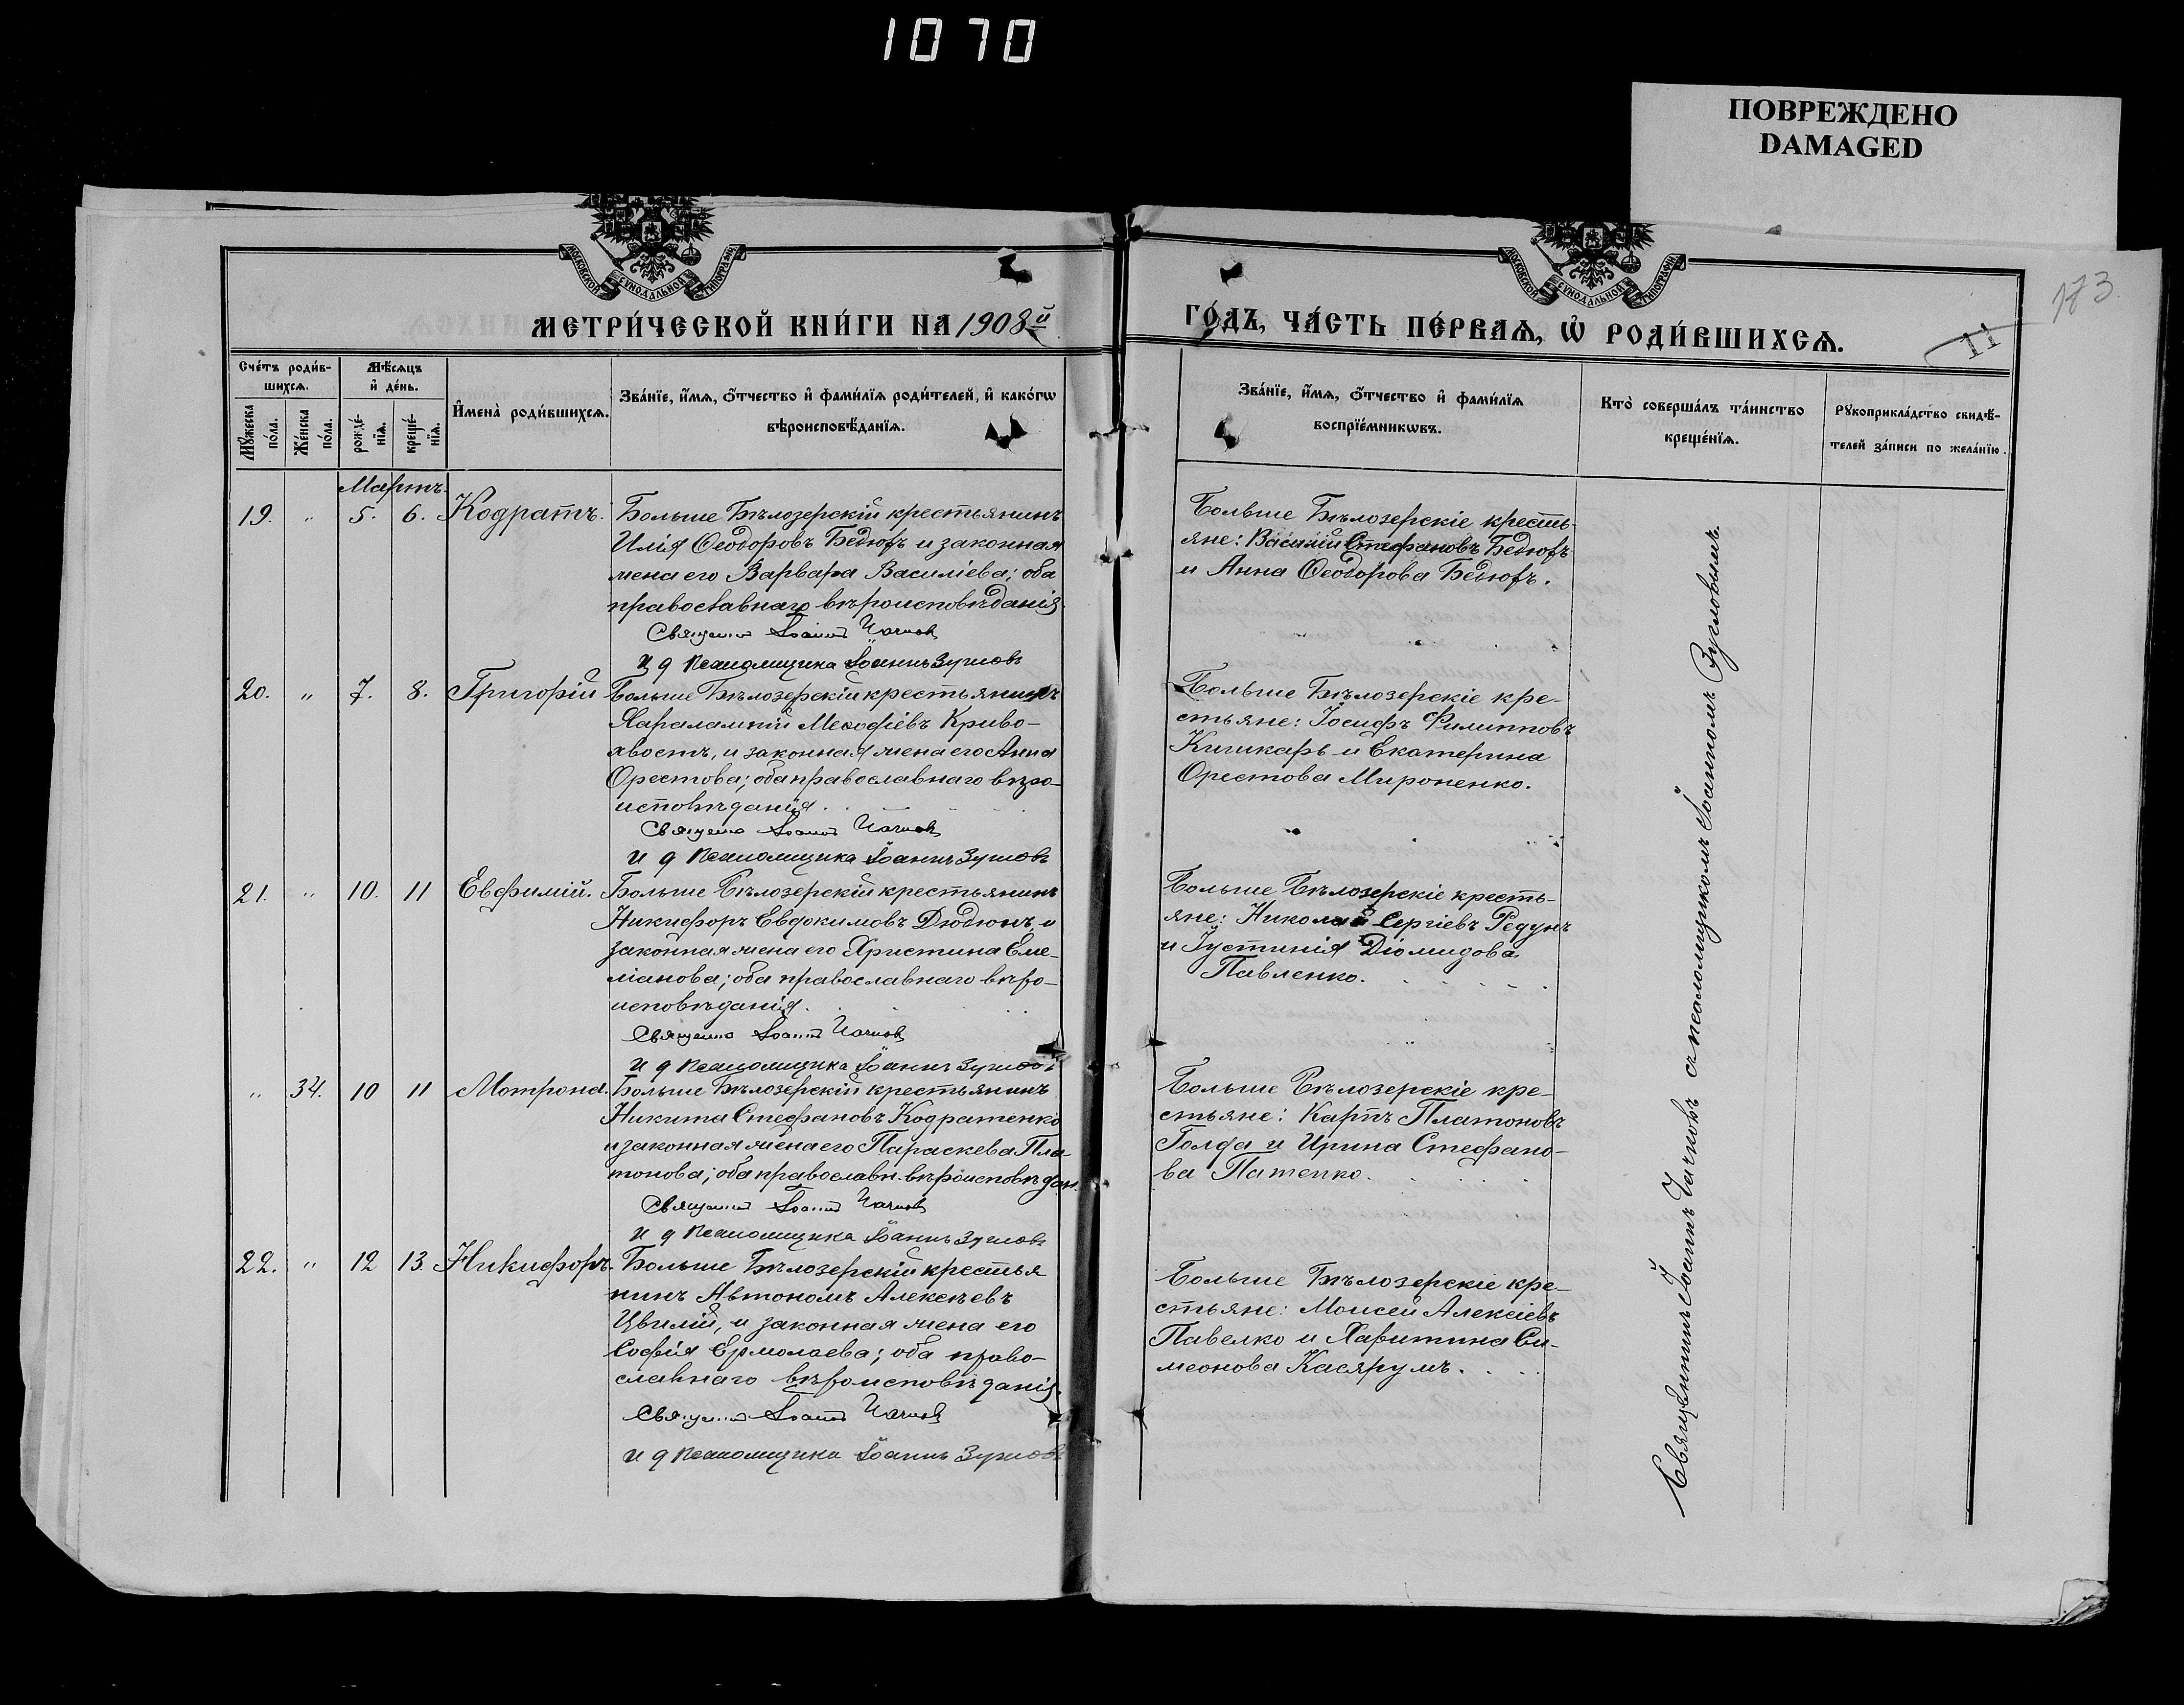 1070
ПОВРЕЖДЕНО
DAMAGED
173
11
МОСКОВСКОЙ СѴНОДАЛЬНОЙ ТИПОГРАФІИ
МОСКОВСКОЙ СѴНОДАЛЬНОЙ ТИПОГРАФІИ
МЕТРИ́ЧЕСКОЙ КНИ́ГИ НА 1908й
ГО́ДЪ, ЧА́СТЬ ПЕ́РВАѦ, Ѡ҆ РОДИ́ВШИХСѦ.
Сче́тъ роди́в-
шихсѧ.
Мѣ́сѧцъ
и҆ де́нь.
Мꙋ́жеска
по́ла.
Же́нска
по́ла.
рожде́-
нїѧ.
креще́-
нїѧ.
И҆мена̀ роди́вшихсѧ.
Зва́нїе, и҆́мѧ, ѻ҆́тчество и҆ фами́лїѧ роди́телей, и҆ како́гѡ
вѣроисповѣ́данїѧ.
Зва́нїе, и҆́мѧ, ѻ҆́тчество и҆ фами́лїѧ
воспрїе́мникѡвъ.
Кто̀ соверша́лъ та́инство
креще́нїѧ.
Рꙋкоприкла́дство свидѣ́-
телей за́писи по жела́нїю.
Мартъ.
19. " 5. 6. Кодратъ.
Больше Бѣлозерскій крестьянинъ
Илія Ѳеодоровъ Бедюхъ и законная
жена его Варвара Василіева; оба
православнаго вѣроисповѣданія.
Священн Іоаннъ Чачковъ
И д псаломщика Іоаннъ Зугловъ
Больше Бѣлозерскіе кресть-
яне: Василій Стефановъ Бедюхъ
и Анна Ѳеодорова Бедюхъ.
20. " 7. 8. Григорій
Больше Бѣлозерскій крестьянинъ
Харалампій Меѳофіевъ Криво-
хвостъ, и законная жена его Анна
Орестова; оба православнаго вѣро-
исповѣданія.
Священн Іоаннъ Чачковъ
и д псаломщика Іоаннъ Зугловъ
Больше Бѣлозерскіе кре-
стьяне: Іосифъ Филипповъ
Кишкарь и Екатерина
Орестова Мироненко.
21. " 10. 11 Евфимій.
Больше Бѣлозерскій крестьянинъ
Никифоръ Евдокимовъ Дюдюнъ, и
законная жена его Христина Еме-
ліанова; оба православнаго вѣро-
исповѣданія.
Священн Іоаннъ Чачковъ
и д псаломщика Іоаннъ Зугловъ
Больше Бѣлозерскіе кресть-
яне: Николай Сергіевъ Редунъ
и Іустинія Діомидова
Павленко.
" 34. 10 11 Мотрона.
Больше Бѣлозерскій крестьянинъ
Никита Стефановъ Кодратенко
и законная жена его Параскева Пла-
тонова; оба православн. вѣроисповѣдан.
Священн Іоаннъ Чачковъ
и д псаломщика Іоаннъ Зугловъ
Больше Бѣлозерскіе кре-
стьяне: Карпъ Платоновъ
Голда и Ирина Стефано-
ва Патенко.
22. " 12 13. Никифоръ.
Больше Бѣлозерскій крестья
нинъ Автономъ Алексѣевъ
Цвилій, и законная жена его
Софія Ермолаева; оба право-
славнаго вѣроисповѣданія.
Священн Іоаннъ Чачковъ
и д псаломщика Іоаннъ Зугловъ
Больше Бѣлозерскіе кре-
стьяне: Моисей Алексіевъ
Павелко и Харитина Си-
меонова Касярумъ.
Священникъ Іоаннъ Чачковъ съ псаломщикомъ Іоанномъ Зугловымъ.